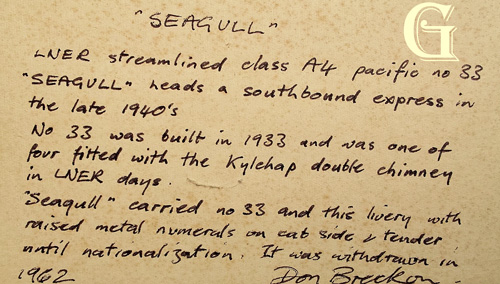 "SEAGULL"
G
LNER streamlined class A4 pacific no 33
"SEAGULL" heads a southbound express in
the late 1940's
No 33 was built in 1933 and was one of
four fitted with the Kylchap double chimney
in LNER days.
"Seagull" carried no 33 and this livery with
raised metal numerals on cab side & tender
until nationalization. It was withdrawn in
1962 Don Breckon